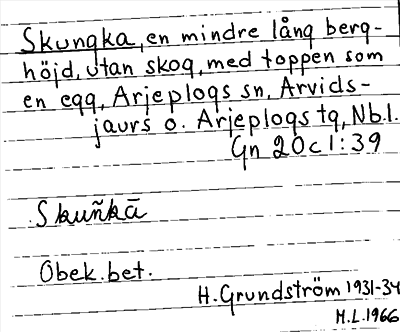 Skungka, en mindre lång berg-
höjd, utan skog, med toppen som
en egg, Arjeplogs sn, Arvids-
jaurs o. Arjeplogs tg, Nb.l.
Gn 20c1:39
Skuñ̄kā
Obek. bet.
H. Grundström 1931-34
M.L. 1966